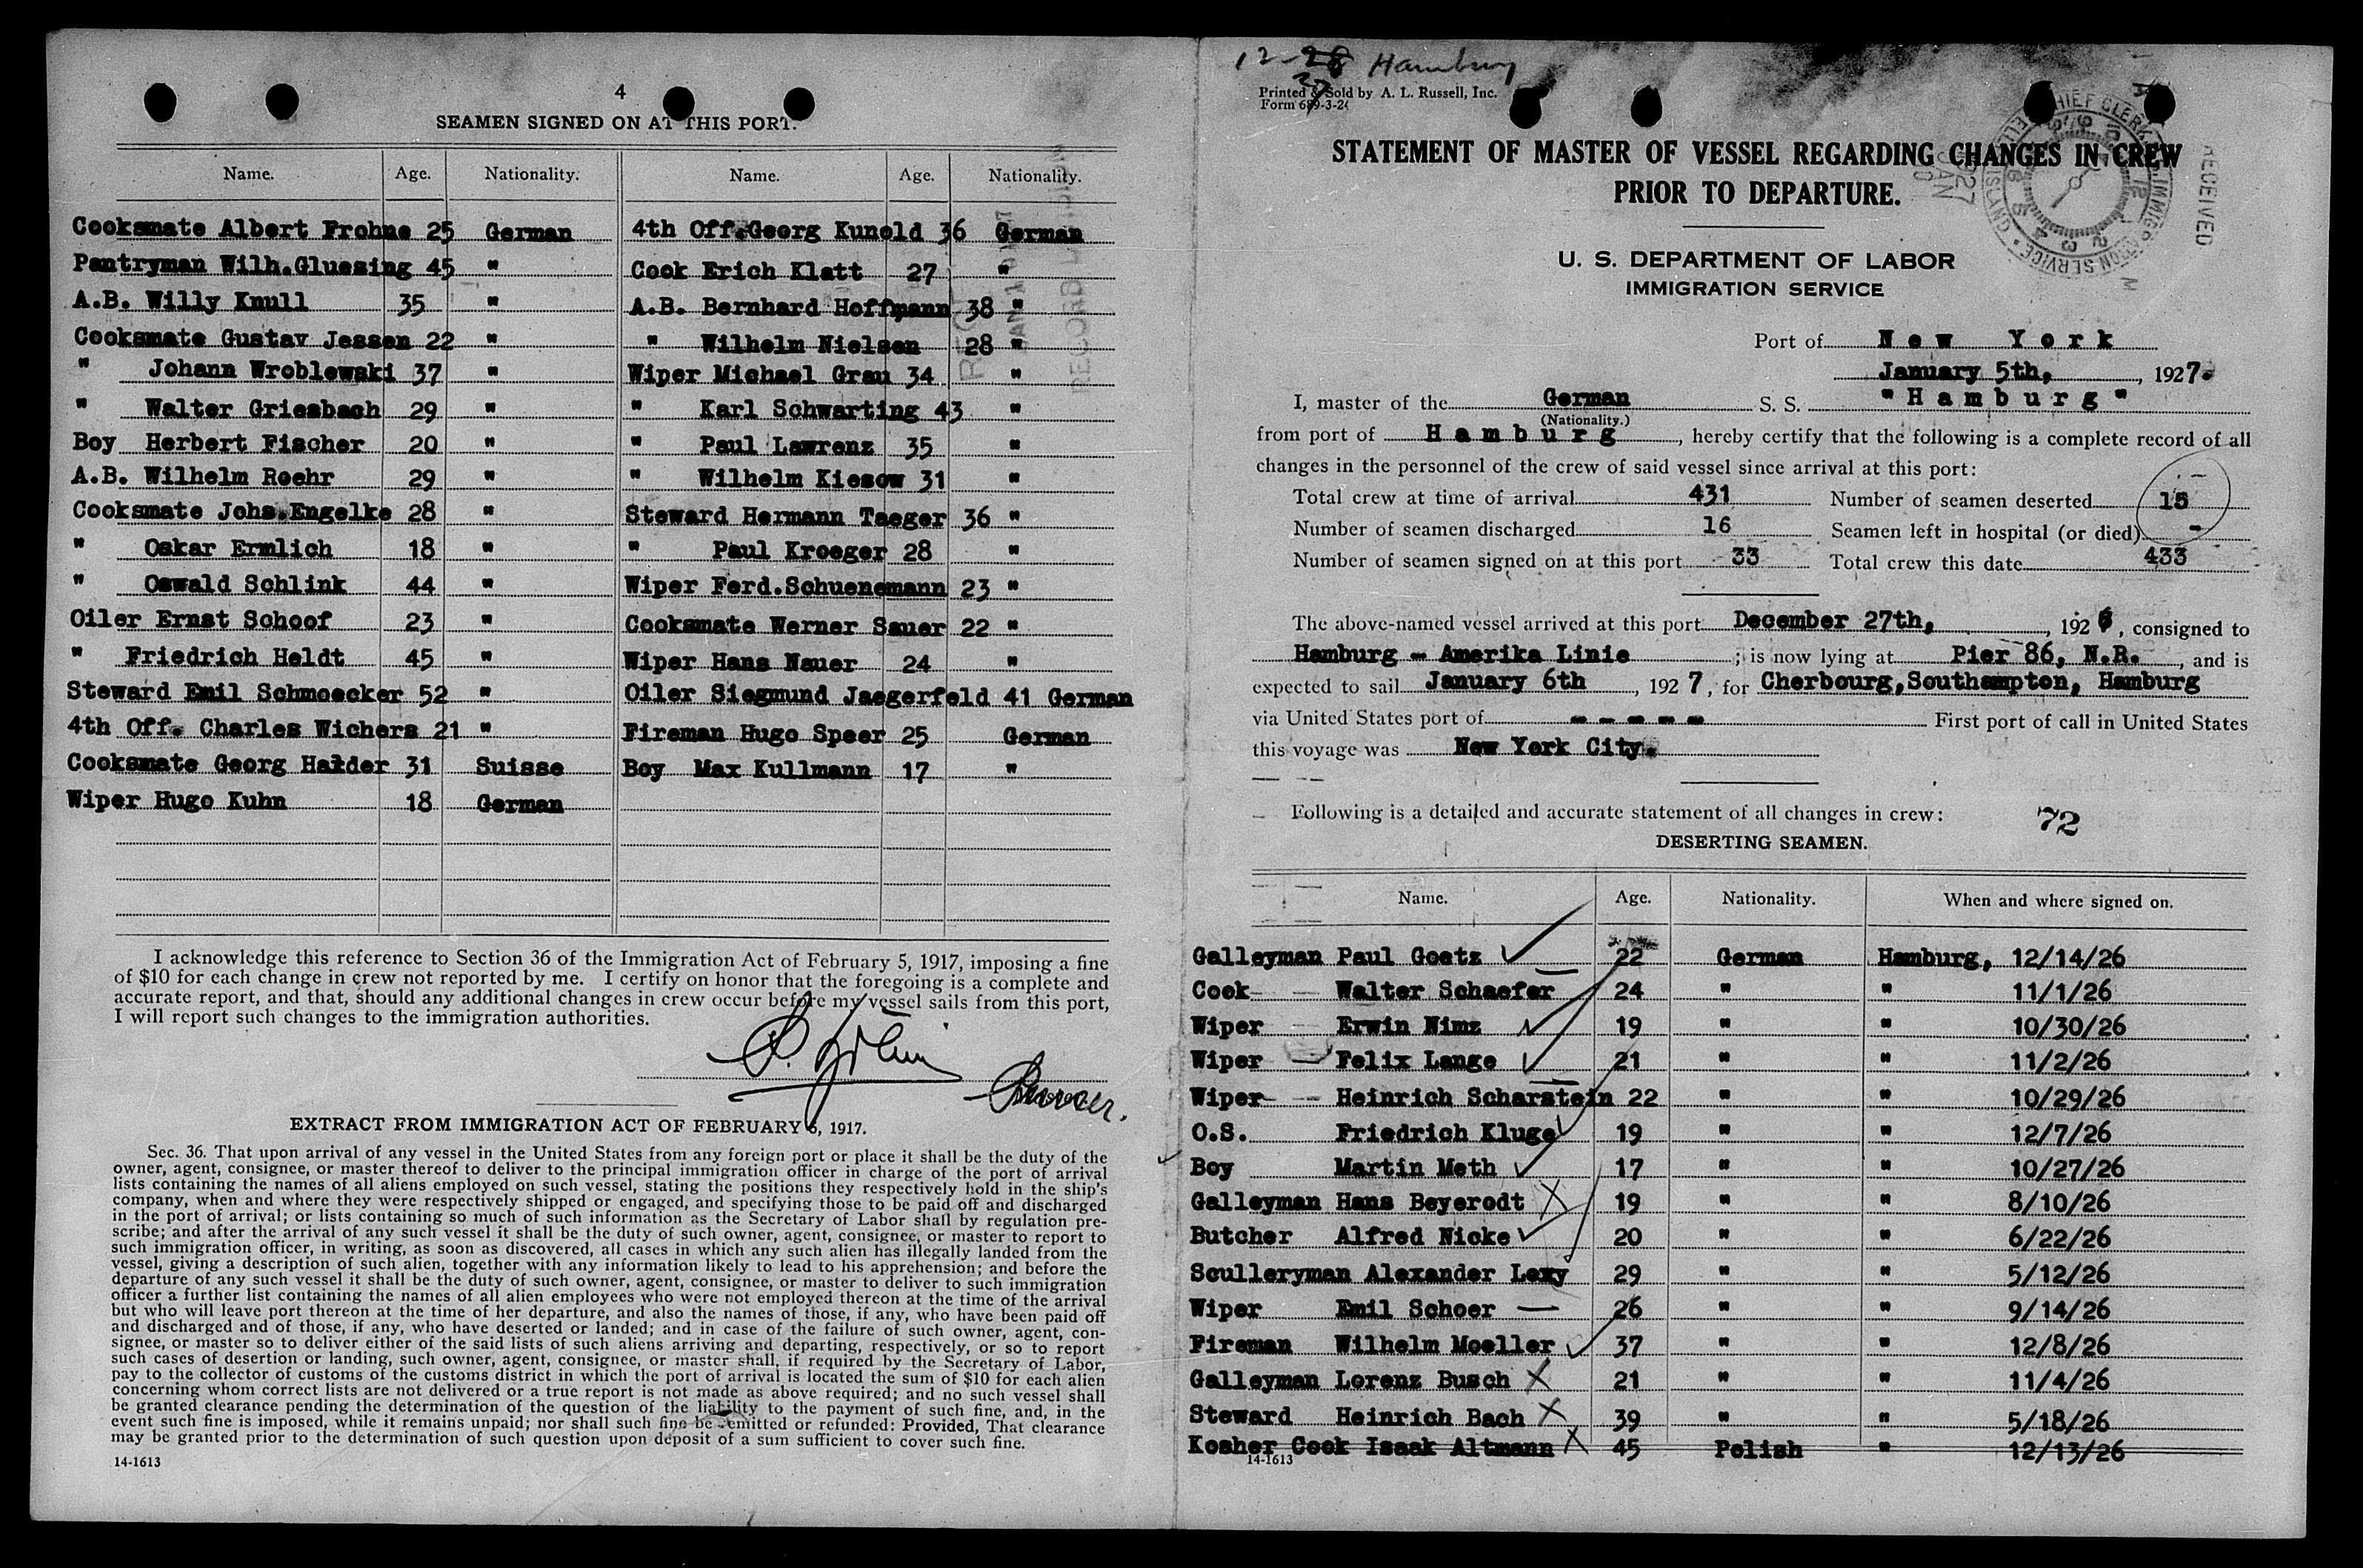 4
SEAMEN SIGNED ON AT THIS PORT.
Name. Age. Nationality. Name. Age. Nationality.
Cooksmate Albert Frohne 25 German 4th Off. Georg Kunold 36 German
Pantryman Wilh. Gluesing 45 " Cook Erich Klatt 27 "
A.B. Willy Knull 35 " A.B. Bernhard Hoffmann 38 "
Cooksmate Gustav Jessen 22 " " Wilhelm Nielsen 28 "
" Johann Wroblewski 37 " Wiper Michael Grau 34 "
" Walter Griesbach 29 " " Karl Schwarting 43 "
Boy Herbert Fischer 20 " " Paul Lawrenz 35 "
A.B. Wilhelm Roehr 29 " " Wilhelm Kiesow 31 "
Cooksmate Johs. Engelke 28 " Steward Hermann Taeger 36 "
" Oskar Ermlich 18 " " Paul Kroeger 28 "
" Oswald Schlink 44 " Wiper Ferd. Schuenemann 23 "
Oiler Ernst Schoof 23 " Cooksmate Werner Sauer 22 "
" Friedrich Heldt 45 " Wiper Hans Nauer 24 "
Steward Emil Schmoecker 52 " Oiler Siegmund Jaegerfeld 41 German
4th Off. Charles Wichers 21 " Fireman Hugo Speer 25 German
Cooksmate Georg Halder 31 Suisse Boy Max Kullmann 17 "
Wiper Hugo Kuhn 18 German
I acknowledge this reference to Section 36 of the Immigration Act of February 5, 1917, imposing a fine
of $10 for each change in crew not reported by me. I certify on honor that the foregoing is a complete and
accurate report, and that, should any additional changes in crew occur before my vessel sails from this port,
I will report such changes to the immigration authorities.
EXTRACT FROM IMMIGRATION ACT OF FEBRUARY 5, 1917.
Sec. 36. That upon arrival of any vessel in the United States from any foreign port or place it shall be the duty of the
owner, agent, consignee, or master thereof to deliver to the principal immigration officer in charge of the port of arrival
lists containing the names of all aliens employed on such vessel, stating the positions they respectively hold in the ship's
company, when and where they were respectively shipped or engaged, and specifying those to be paid off and discharged
in the port of arrival; or lists containing so much of such information as the Secretary of Labor shall by regulation pre-
scribe; and after the arrival of any such vessel it shall be the duty of such owner, agent, consignee, or master to report to
such immigration officer, in writing, as soon as discovered, all cases in which any such alien has illegally landed from the
vessel, giving a description of such alien, together with any information likely to lead to his apprehension; and before the
departure of any such vessel it shall be the duty of such owner, agent, consignee, or master to deliver to such immigration
officer a further list containing the names of all alien employees who were not employed thereon at the time of the arrival
but who will leave port thereon at the time of her departure, and also the names of those, if any, who have been paid off
and discharged and of those, if any, who have deserted or landed; and in case of the failure of such owner, agent, con-
signee, or master so to deliver either of the said lists of such aliens arriving and departing, respectively, or so to report
such cases of desertion or landing, such owner, agent, consignee, or master shall, if required by the Secretary of Labor,
pay to the collector of customs of the customs district in which the port of arrival is located the sum of $10 for each alien
concerning whom correct lists are not delivered or a true report is not made as above required; and no such vessel shall
be granted clearance pending the determination of the question of the liability to the payment of such fine, and, in the
event such fine is imposed, while it remains unpaid; nor shall such fine be remitted or refunded: Provided, That clearance
may be granted prior to the determination of such question upon deposit of a sum sufficient to cover such fine.
14-1613
12-28 Hamburg
27
Printed & Sold by A. L. Russell, Inc.
Form 689-3-24
STATEMENT OF MASTER OF VESSEL REGARDING CHANGES IN CREW
PRIOR TO DEPARTURE.
RECEIVED
U. S. DEPARTMENT OF LABOR
IMMIGRATION SERVICE
Port of New York
January 5th, 1927.
I, master of the German S. S. "Hamburg"
(Nationality.)
from port of Hamburg, hereby certify that the following is a complete record of all
changes in the personnel of the crew of said vessel since arrival at this port:
Total crew at time of arrival 431 Number of seamen deserted 15
Number of seamen discharged 16 Seamen left in hospital (or died) -
Number of seamen signed on at this port 33 Total crew this date 433
The above-named vessel arrived at this port December 27th, 1926, consigned to
Hamburg - Amerika Linie; is now lying at Pier 86, N.R., and is
expected to sail January 6th, 1927, for Cherbourg, Southampton, Hamburg
via United States port of - - - - - First port of call in United States
this voyage was New York City.
Following is a detailed and accurate statement of all changes in crew: 72
DESERTING SEAMEN.
Name. Age. Nationality. When and where signed on.
Galleyman Paul Goetz 22 German Hamburg, 12/14/26
Cook Walter Schaefer 24 " " 11/1/26
Wiper Erwin Nimz 19 " " 10/30/26
Wiper Felix Lange 21 " " 11/2/26
Wiper Heinrich Scharstein 22 " " 10/29/26
O.S. Friedrich Kluge 19 " " 12/7/26
Boy Martin Meth 17 " " 10/27/26
Galleyman Hans Beyerodt 19 " " 8/10/26
Butcher Alfred Nicke 20 " " 6/22/26
Sculleryman Alexander Lexy 29 " " 5/12/26
Wiper Emil Schoer 26 " " 9/14/26
Fireman Wilhelm Moeller 37 " " 12/8/26
Galleyman Lorenz Busch 21 " " 11/4/26
Steward Heinrich Bach 39 " " 5/18/26
Kosher Cook Isaak Altmann 45 Polish " 12/13/26
14-1613